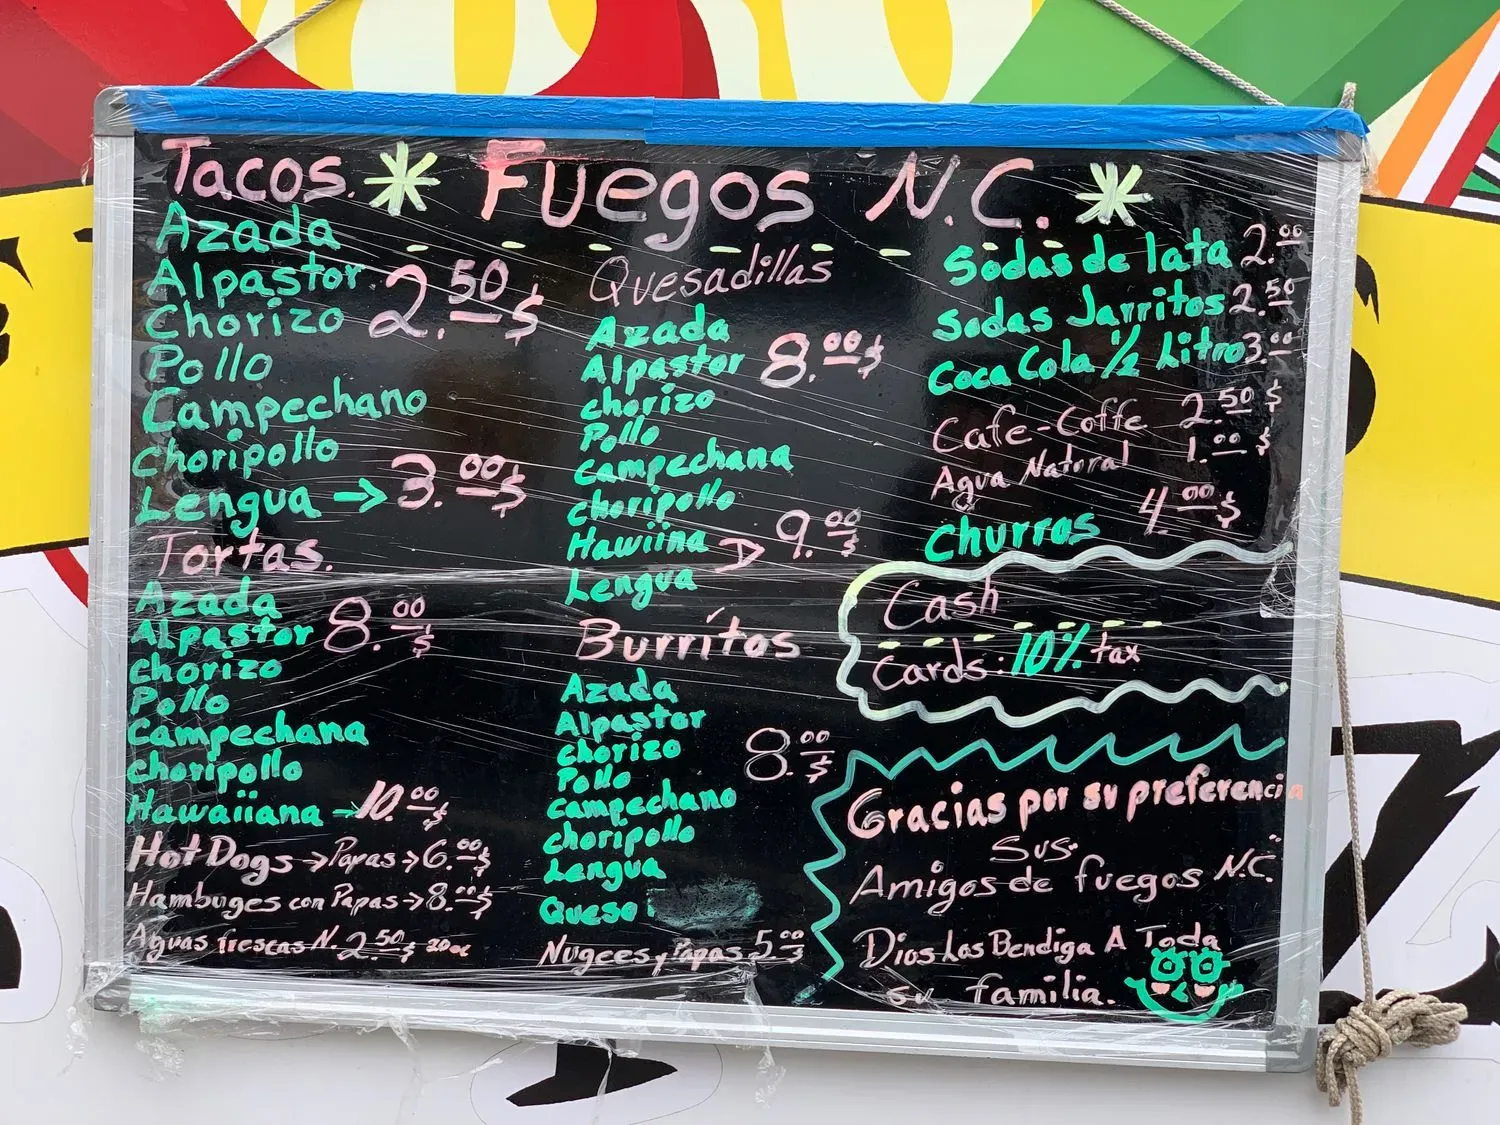 Tacos. * Fuegos N.C. *
Azada
Alpastor 2.50$
Chorizo
Pollo
Campechano
Choripollo
Lengua → 3.00$
Tortas.
Azada
Alpastor 8.00$
Chorizo
Pollo
Campechana
Choripollo
Hawaiiana → 10.00$
Hot Dogs → Papas → 6.00$
Hambuges con Papas → 8.00$
Aguas frescas N. 2.50$
Quesadillas
Azada
Alpastor 8.00$
chorizo
Pollo
campechana
choripollo
Hawiina
Lengua 9.00$
Burritos
Azada
Alpastor
chorizo 8.00$
Pollo
campechano
choripollo
Lengua
Queso
Nugees y Papas 5.00
Sodas de lata 2.00
Sodas Jarritos 2.50
Coca Cola 1/2 Litro 3.00
Cafe-Coffe 2.50$
Agua Natural 1.00$
Churros 4.00$
Cash
Cards: 10% tax
Gracias por su preferencia
Sus
Amigos de fuegos N.C.
Dios Los Bendiga A Toda
su familia.